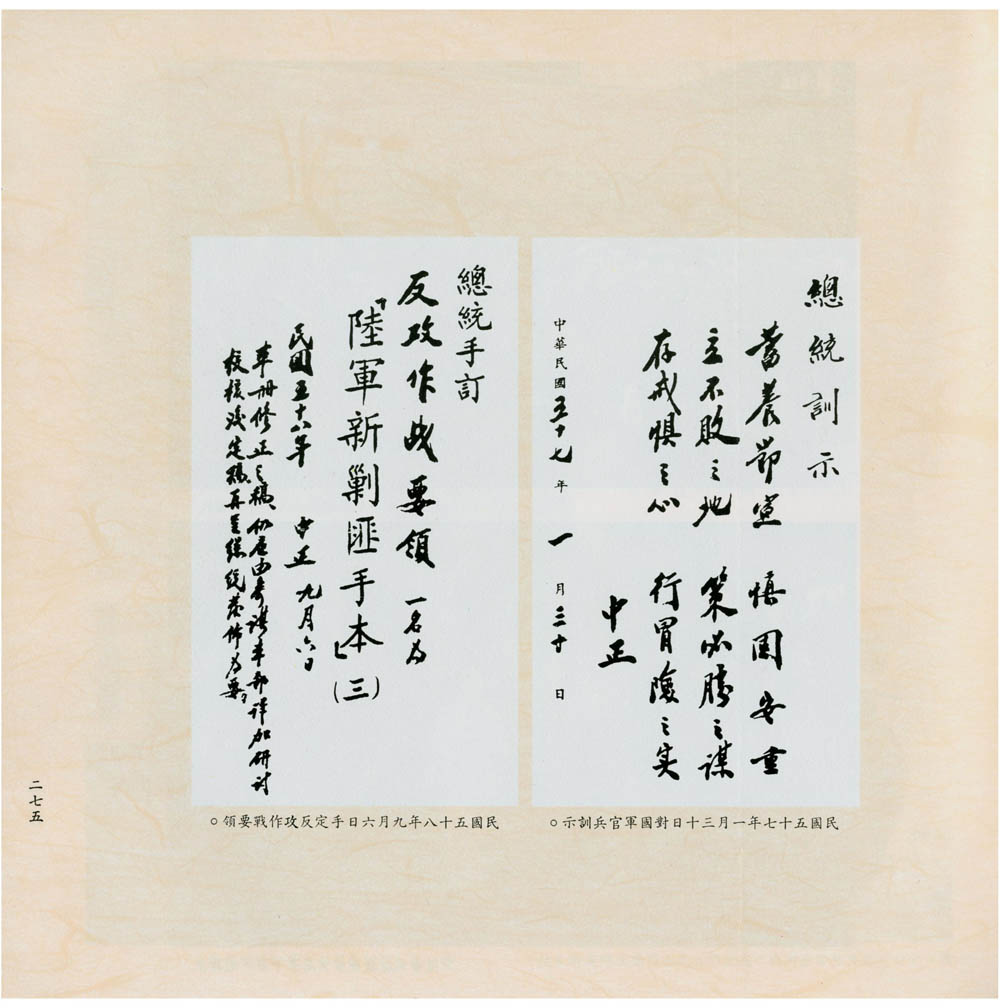 總統訓示
蓄養節宣　慎固安重
立不敗之地　策必勝之謀
存戒懼之心　行冒險之実
中正
中華民國五十七年一月三十日
民國五十七年一月三十日對國軍官兵訓示。
總統手訂
反攻作战要領　一名為
「陸軍新剿匪手本」(三)
民國五十八年　中正　九月六日
本冊修正之稿仍應由參謀本部詳加研討
校核後定稿再呈總統發佈為要。
民國五十八年九月六日手定反攻作戰要領。
二七五